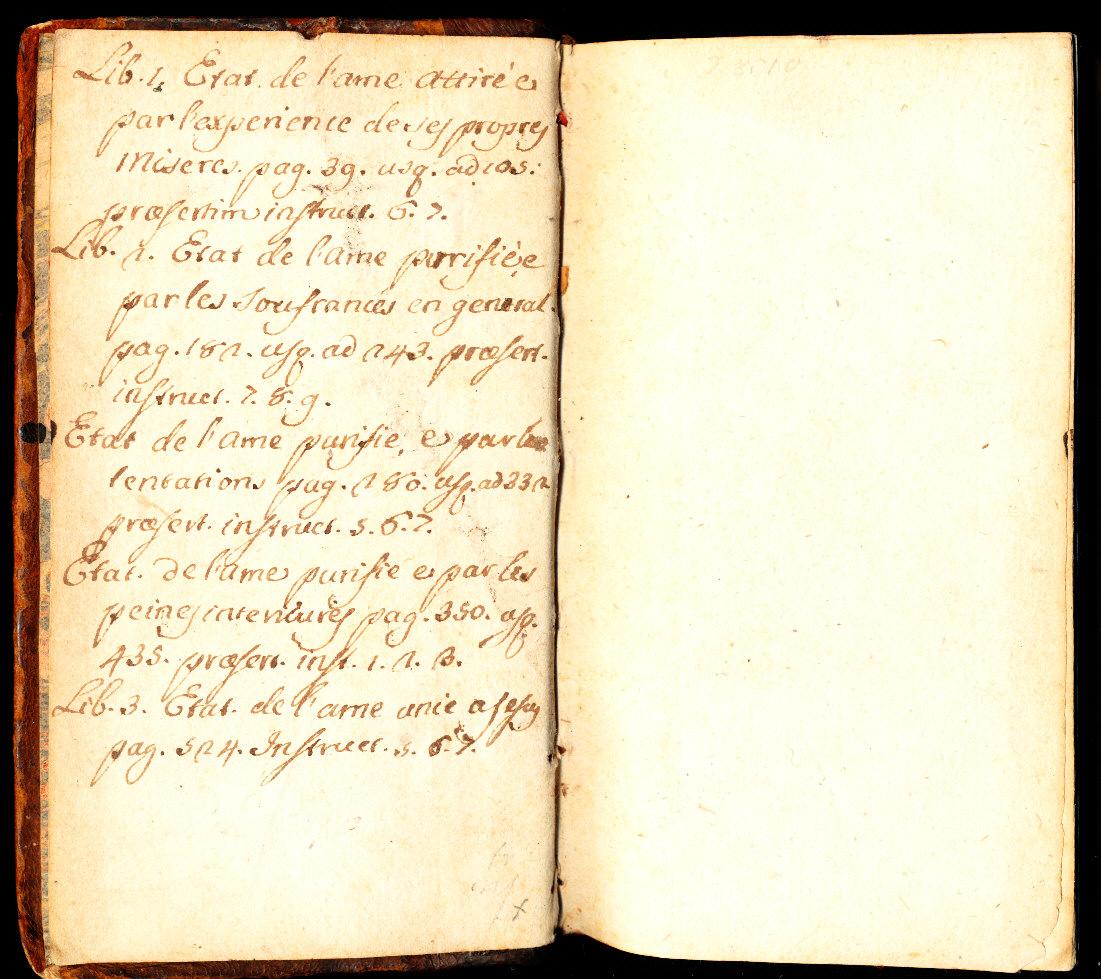 Lib. 1. Etat. de l'ame attiré e
par l'experience de ses propres
miseres. pag. 39. usq. ad 105:
præsertim instruct. 6. 7.
Lib. 2. Etat de l'ame purifiée
par les soufrances en general.
pag. 182. usq. ad 243. præsert.
instruct. 7. 8. 9.
Etat de l'ame purifie, e par les
tentations pag. 280. usq. ad 332
præsert. instruct. 5. 6. 7.
Etat. de l'ame purifié e par les
peines interieures pag. 350. usq.
435. præsert. inst. 1. 2. 3.
Lib. 3. Etat. de l'ame unie a Jesus
pag. 524. Instruct. 5. 6. 7.